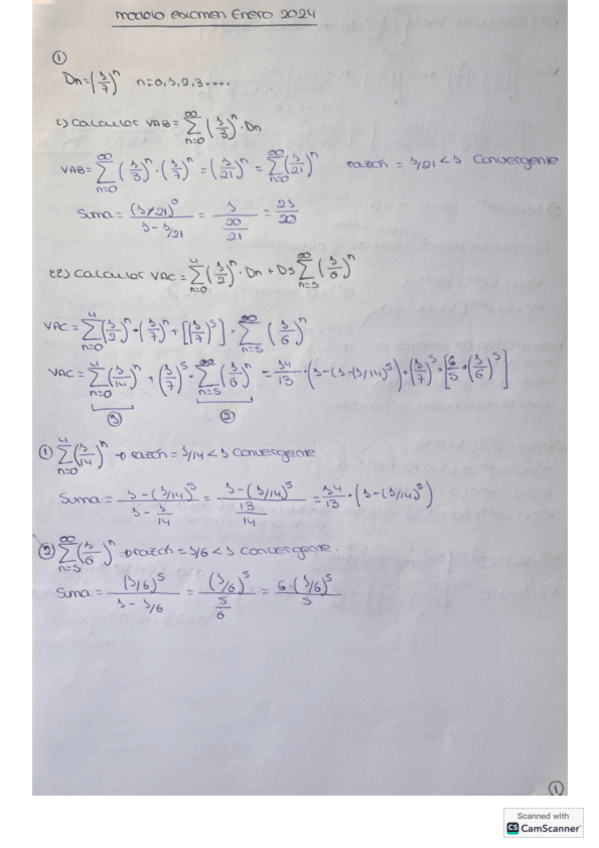 modelo examen Enero 2024
①
Dn=(1/7)^n n=0,1,2,3....
i) calcular VAB=∑_{n=0}^{∞} (1/3)^n · Dn
VAB=∑_{n=0}^{∞} (1/3)^n · (1/7)^n = (1/21)^n = ∑_{n=0}^{∞} (1/21)^n razón = 1/21 < 1 Convergente
Suma = (1/21)^0 / (1 - 1/21) = 1 / (20/21) = 21/20
ii) calcular VAC = ∑_{n=0}^{4} (1/2)^n · Dn + D5 ∑_{n=5}^{∞} (1/6)^n
VAC = ∑_{n=0}^{4} (1/2)^n · (1/7)^n + [(1/7)^5] · ∑_{n=5}^{∞} (1/6)^n
VAC = ∑_{n=0}^{4} (1/14)^n + (1/7)^5 · ∑_{n=5}^{∞} (1/6)^n = 14/13 · (1-(1-(1/14)^5) + (1/7)^5 · [6/5 · (1/6)^5]
① ②
① ∑_{n=0}^{4} (1/14)^n → razón = 1/14 < 1 convergente
Suma = (1-(1/14)^5) / (1 - 1/14) = (1-(1/14)^5) / (13/14) = 14/13 · (1-(1/14)^5)
② ∑_{n=5}^{∞} (1/6)^n → razón = 1/6 < 1 convergente.
Suma = (1/6)^5 / (1 - 1/6) = (1/6)^5 / (5/6) = 6·(1/6)^5 / 5
①
Scanned with
CS CamScanner